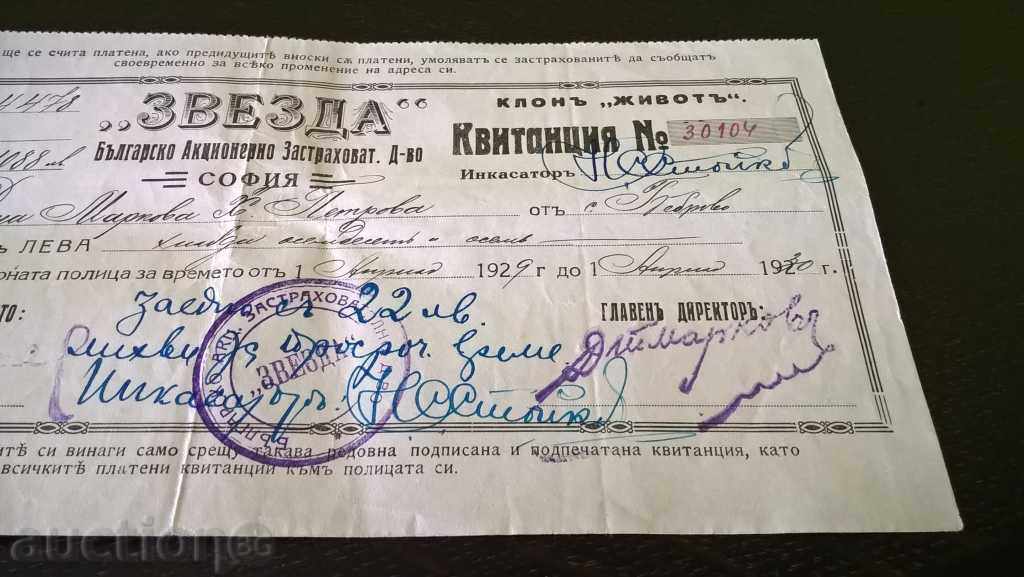 ще се счита платена, ако предидущитѣ вноски сѫ платени, умоляватъ се застрахованитѣ да съобщатъ
своевременно за всѣко промѣнение на адреса си.
478
„ЗВЕЗДА“
КЛОНЪ „ЖИВОТЪ“.
Квитанция № 30104
1088 лв
Българско Акционерно Застраховат. Д-во
Инкасаторъ
СОФИЯ
Маркова Х. Петрова отъ с. Беброво
ЛЕВА хиляда осемдесетъ и осемь
полица за времето отъ 1 Априлий 1929 г до 1 Априлий 1930 г.
Заедно съ 22 лв.
ГЛАВЕНЪ ДИРЕКТОРЪ:
лихви за просроч. време
Инкасаторъ:
„ЗВЕЗДА“
си винаги само срещу такава редовна подписана и подпечатана квитанция, като
всичкитѣ платени квитанции къмъ полицата си.
auction BG